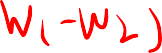 W₁-W₂)